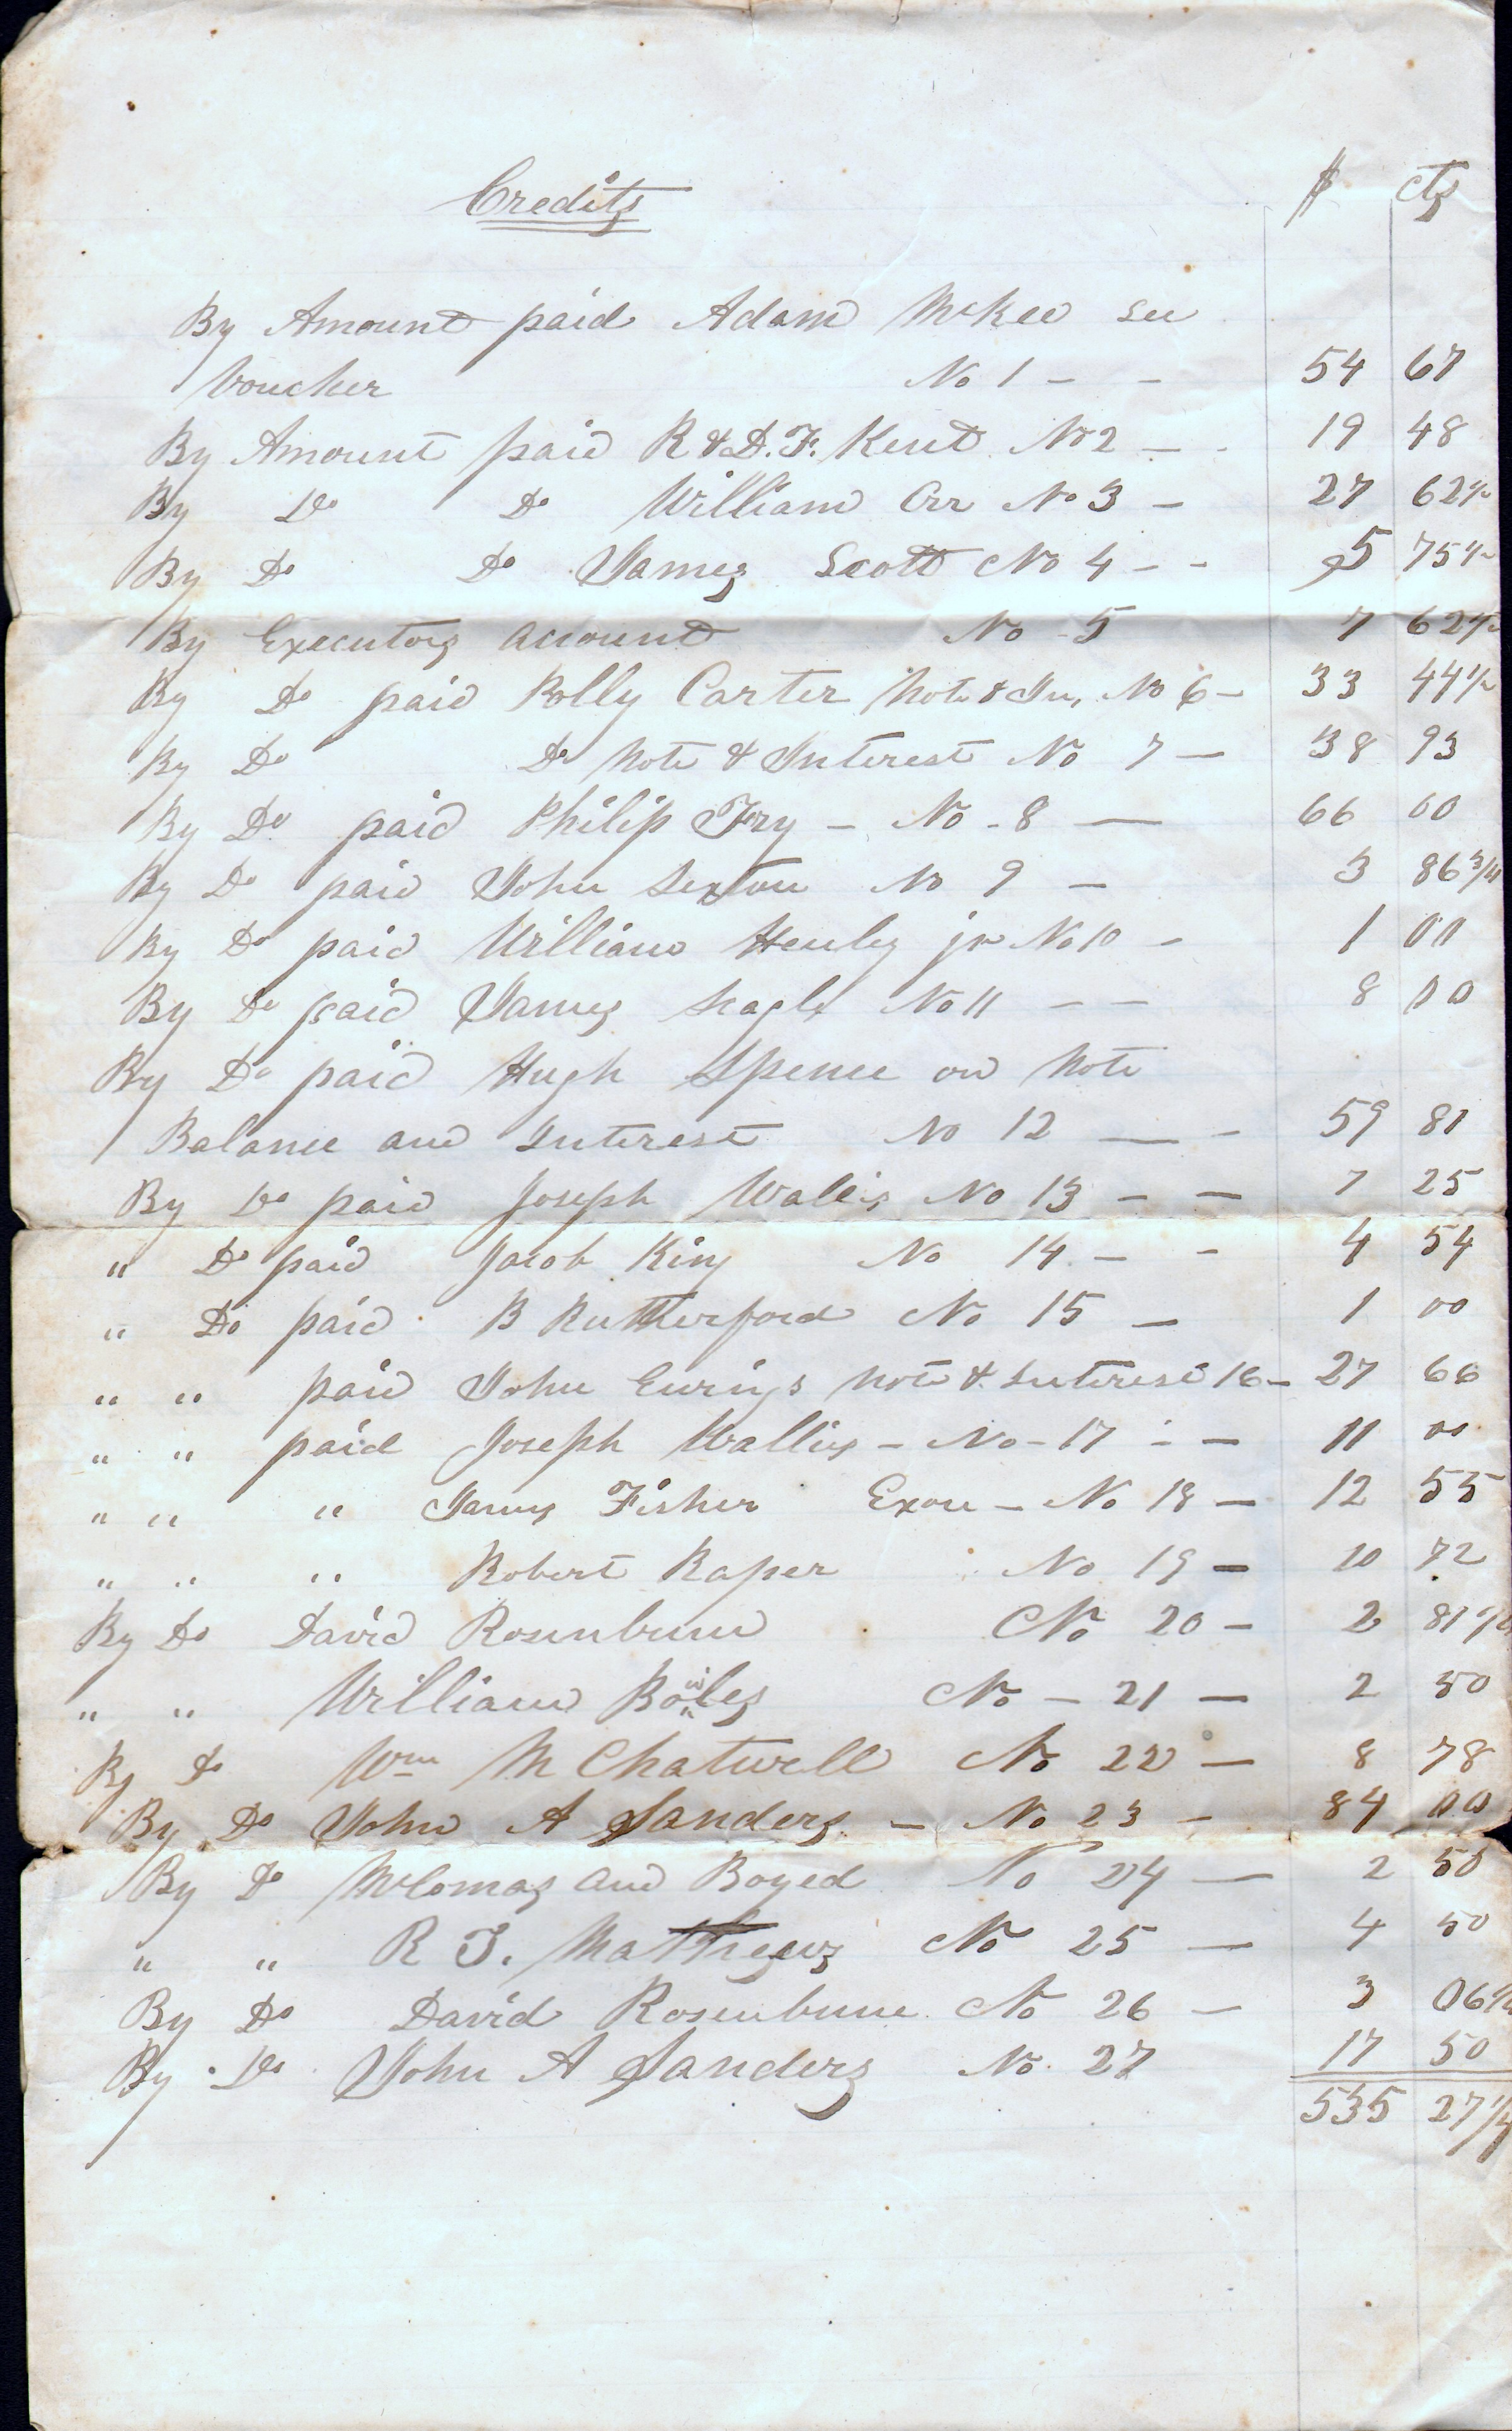 Credits $ cts
By Amount paid Adam McKee see
voucher No 1 - - 54 67
By Amount paid R & D. F. Kent No 2 - - 19 48
By Do Do William Orr No 3 - 27 62½
By Do Do James Scott No 4 - - 5 75½
By Executors account No 5 7 62½
By Do paid Polly Carter Note & In, No 6 - 33 44½
By Do Do Note & Interest No 7 - 38 93
By Do paid Philip Fry - No - 8 - 66 00
By Do paid John Sexton No 9 - 3 86¾
By Do paid William Henley jr No 10 - 1 00
By Do paid James Nagle No 11 - - 8 00
By Do paid Hugh Spence on Note
Balance and Interest No 12 - - 59 81
By Do paid Joseph Wallis No 13 - - 7 25
" Do paid Jacob King No 14 - - 4 54
" Do paid B Rutherford No 15 - 1 00
" " paid John Ewing's Note & Interest 16 - 27 66
" " paid Joseph Wallis - No - 17 - - 11 00
" " " James Fisher - No 18 - 12 55
" " " Robert Raper No 19 - 10 72
By Do David Rosenbum No 20 - 2 81
" " William Bowles No - 21 - 2 50
By Do Wm M Chatwell No 22 - 8 78
By Do John A Sanders - No 23 - 84 00
By Do McComas and Boyed No 24 - 2 50
" " R T. Mathews No 25 - 4 50
By Do David Rosenbum No 26 - 3 06¼
By Do John A Sanders No 27 17 50
535 27¼